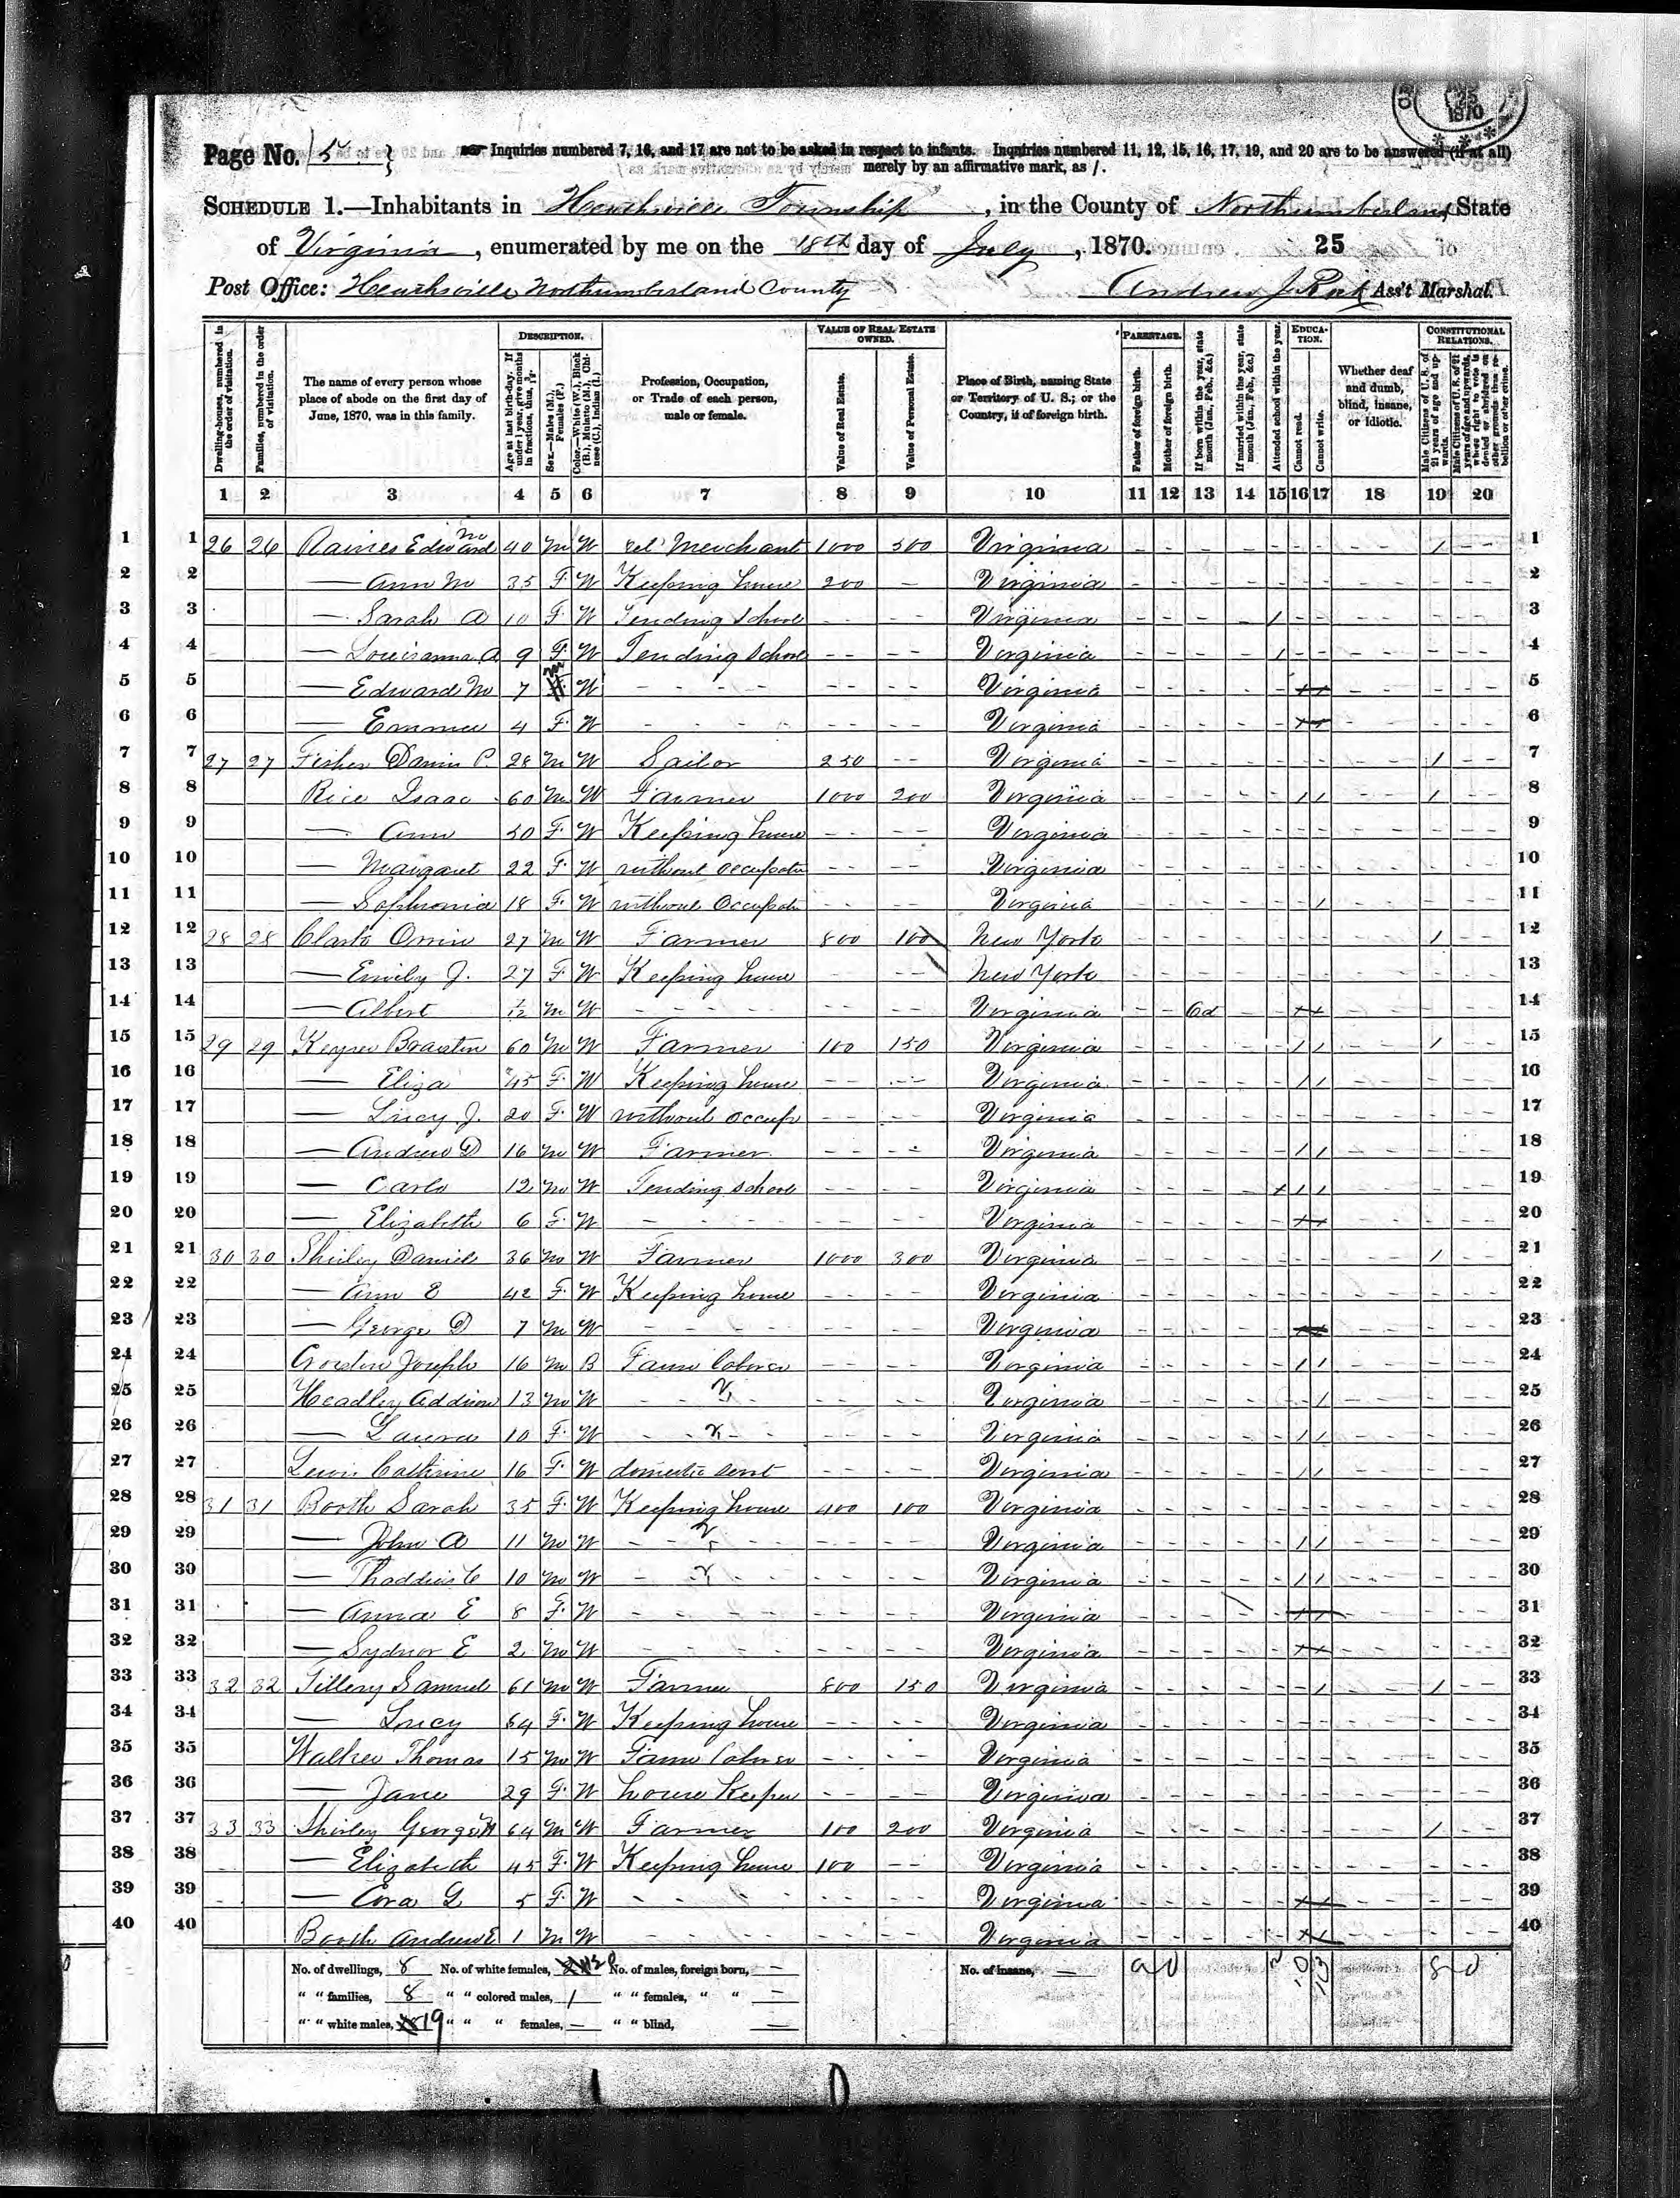 1870
Page No. 15 } Inquiries numbered 7, 16, and 17 are not to be asked in respect to infants. Inquiries numbered 11, 12, 15, 16, 17, 19, and 20 are to be answered (if at all)
merely by an affirmative mark, as /.
SCHEDULE 1.—Inhabitants in Heathsville Township, in the County of Northumberland, State
of Virginia, enumerated by me on the 18th day of July, 1870. 25
Post Office: Heathsville Northumberland County Andrew J. Ass't Marshal.
Dwelling-houses, numbered in the order of visitation.
Families, numbered in the order of visitation.
The name of every person whose place of abode on the first day of June, 1870, was in this family.
DESCRIPTION.
Age at last birth-day. If under 1 year, give months in fractions, thus,
Sex.—Males (M.), Females (F.)
Color.—White (W.), Black (B.), Mulatto (M.), Chinese (C.), Indian (I.)
Profession, Occupation, or Trade of each person, male or female.
VALUE OF REAL ESTATE OWNED.
Value of Real Estate.
Value of Personal Estate.
Place of Birth, naming State or Territory of U. S.; or the Country, if of foreign birth.
PARENTAGE.
Father of foreign birth.
Mother of foreign birth.
If born within the year, state month (Jan., Feb., &c.)
If married within the year, state month (Jan., Feb., &c.)
Attended school within the year.
EDUCATION.
Cannot read.
Cannot write.
Whether deaf and dumb, blind, insane, or idiotic.
CONSTITUTIONAL RELATIONS.
Male Citizens of U. S. of 21 years of age and upwards.
Male Citizens of U. S. of 21 years of age and upwards, whose right to vote is denied or abridged on other grounds than rebellion or other crime.
1 2 3 4 5 6 7 8 9 10 11 12 13 14 15 16 17 18 19 20
1 1 26 26 Raines Edward M 40 M W Merchant 1000 500 Virginia - - - - - - - - - 1 - - 1
2 2 — Ann M 35 F. W Keeping house 200 - Virginia 2
3 3 — Sarah A 10 F. W Tending School - - Virginia / 3
4 4 — Louisanna A 9 F. W Tending School - - Virginia / 4
5 5 — Edward M 7 M W - - Virginia 5
6 6 — Emma 4 F. W - - Virginia 6
7 7 27 27 Fisher P. 28 M W Sailor 250 - - Virginia 1 7
8 8 Rice Isaac 60 M W Farmer 1000 200 Virginia / / 1 8
9 9 — Ann 50 F. W Keeping house - - Virginia 9
10 10 — Margaret 22 F. W without occupation - - Virginia 10
11 11 — Sophronia 18 F. W without Occupation - - Virginia / 11
12 12 28 28 Clark Orrin 27 M W Farmer 800 100 New York 1 12
13 13 — Emily J. 27 F. W Keeping house - - New York 13
14 14 — Albert 1/12 M W - - Virginia 14
15 15 29 29 60 M W Farmer 100 150 Virginia / / 1 15
16 16 — Eliza 45 F. W Keeping house - - Virginia / / 16
17 17 — Lucy J. 20 F. W without occup - - Virginia 17
18 18 — Andrew D 16 M W Farmer - - Virginia / / 18
19 19 — 12 M W Tending School - - Virginia / / / 19
20 20 — Elizabeth 6 F. W - - Virginia 20
21 21 30 30 Shirley Daniel 36 M W Farmer 1000 300 Virginia 1 21
22 22 — Ann E 42 F. W Keeping house - - Virginia 22
23 23 — George D 7 M W - - Virginia 23
24 24 Joseph 16 M B Farm laborer - - Virginia / / 24
25 25 Headley Addison 13 M W - - Virginia / 25
26 26 — Laura 10 F. W - - Virginia / / 26
27 27 Lewis Catherine 16 F. W domestic servt - - Virginia / / 27
28 28 31 31 Booth Sarah 35 F. W Keeping house 400 100 Virginia 28
29 29 — John A 11 M W - - Virginia / / 29
30 30 — Thaddius C 10 M W - - Virginia / / 30
31 31 — Anna E 8 F. W - - Virginia 31
32 32 — Sydnor E 2 M W - - Virginia 32
33 33 32 32 Tillery Samuel 61 M W Farmer 800 150 Virginia / 1 33
34 34 — Lucy 54 F. W Keeping house - - Virginia 34
35 35 Walker Thomas 15 M W Farm laborer - - Virginia 35
36 36 — Jane 29 F. W house Keeper - - Virginia 36
37 37 33 33 Shirley George 64 M W Farmer 100 200 Virginia 1 37
38 38 — Elizabeth 45 F. W Keeping house 100 - - Virginia 38
39 39 — 5 F. W - - Virginia 39
40 40 Booth Andrew E 1 M W - - Virginia 40
No. of dwellings, 8 No. of white females, 20 No. of males, foreign born, — No. of insane, —
" " families, 8 " " colored males, 1 " " females, " " —
" " white males, 19 " " " females, — " " blind, —